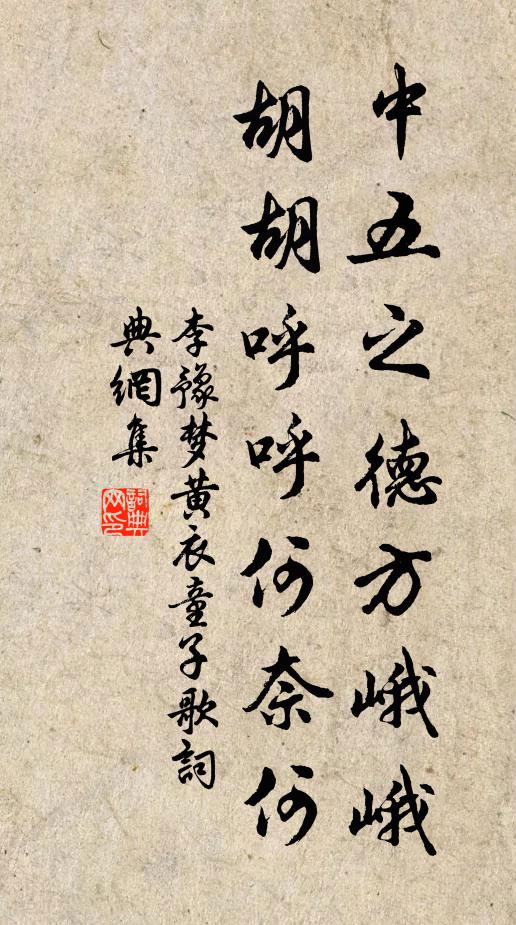 中五之德方峨峨
胡胡呼呼何奈何
李豫梦黄衣童子歌詞
典網集
詞典網印